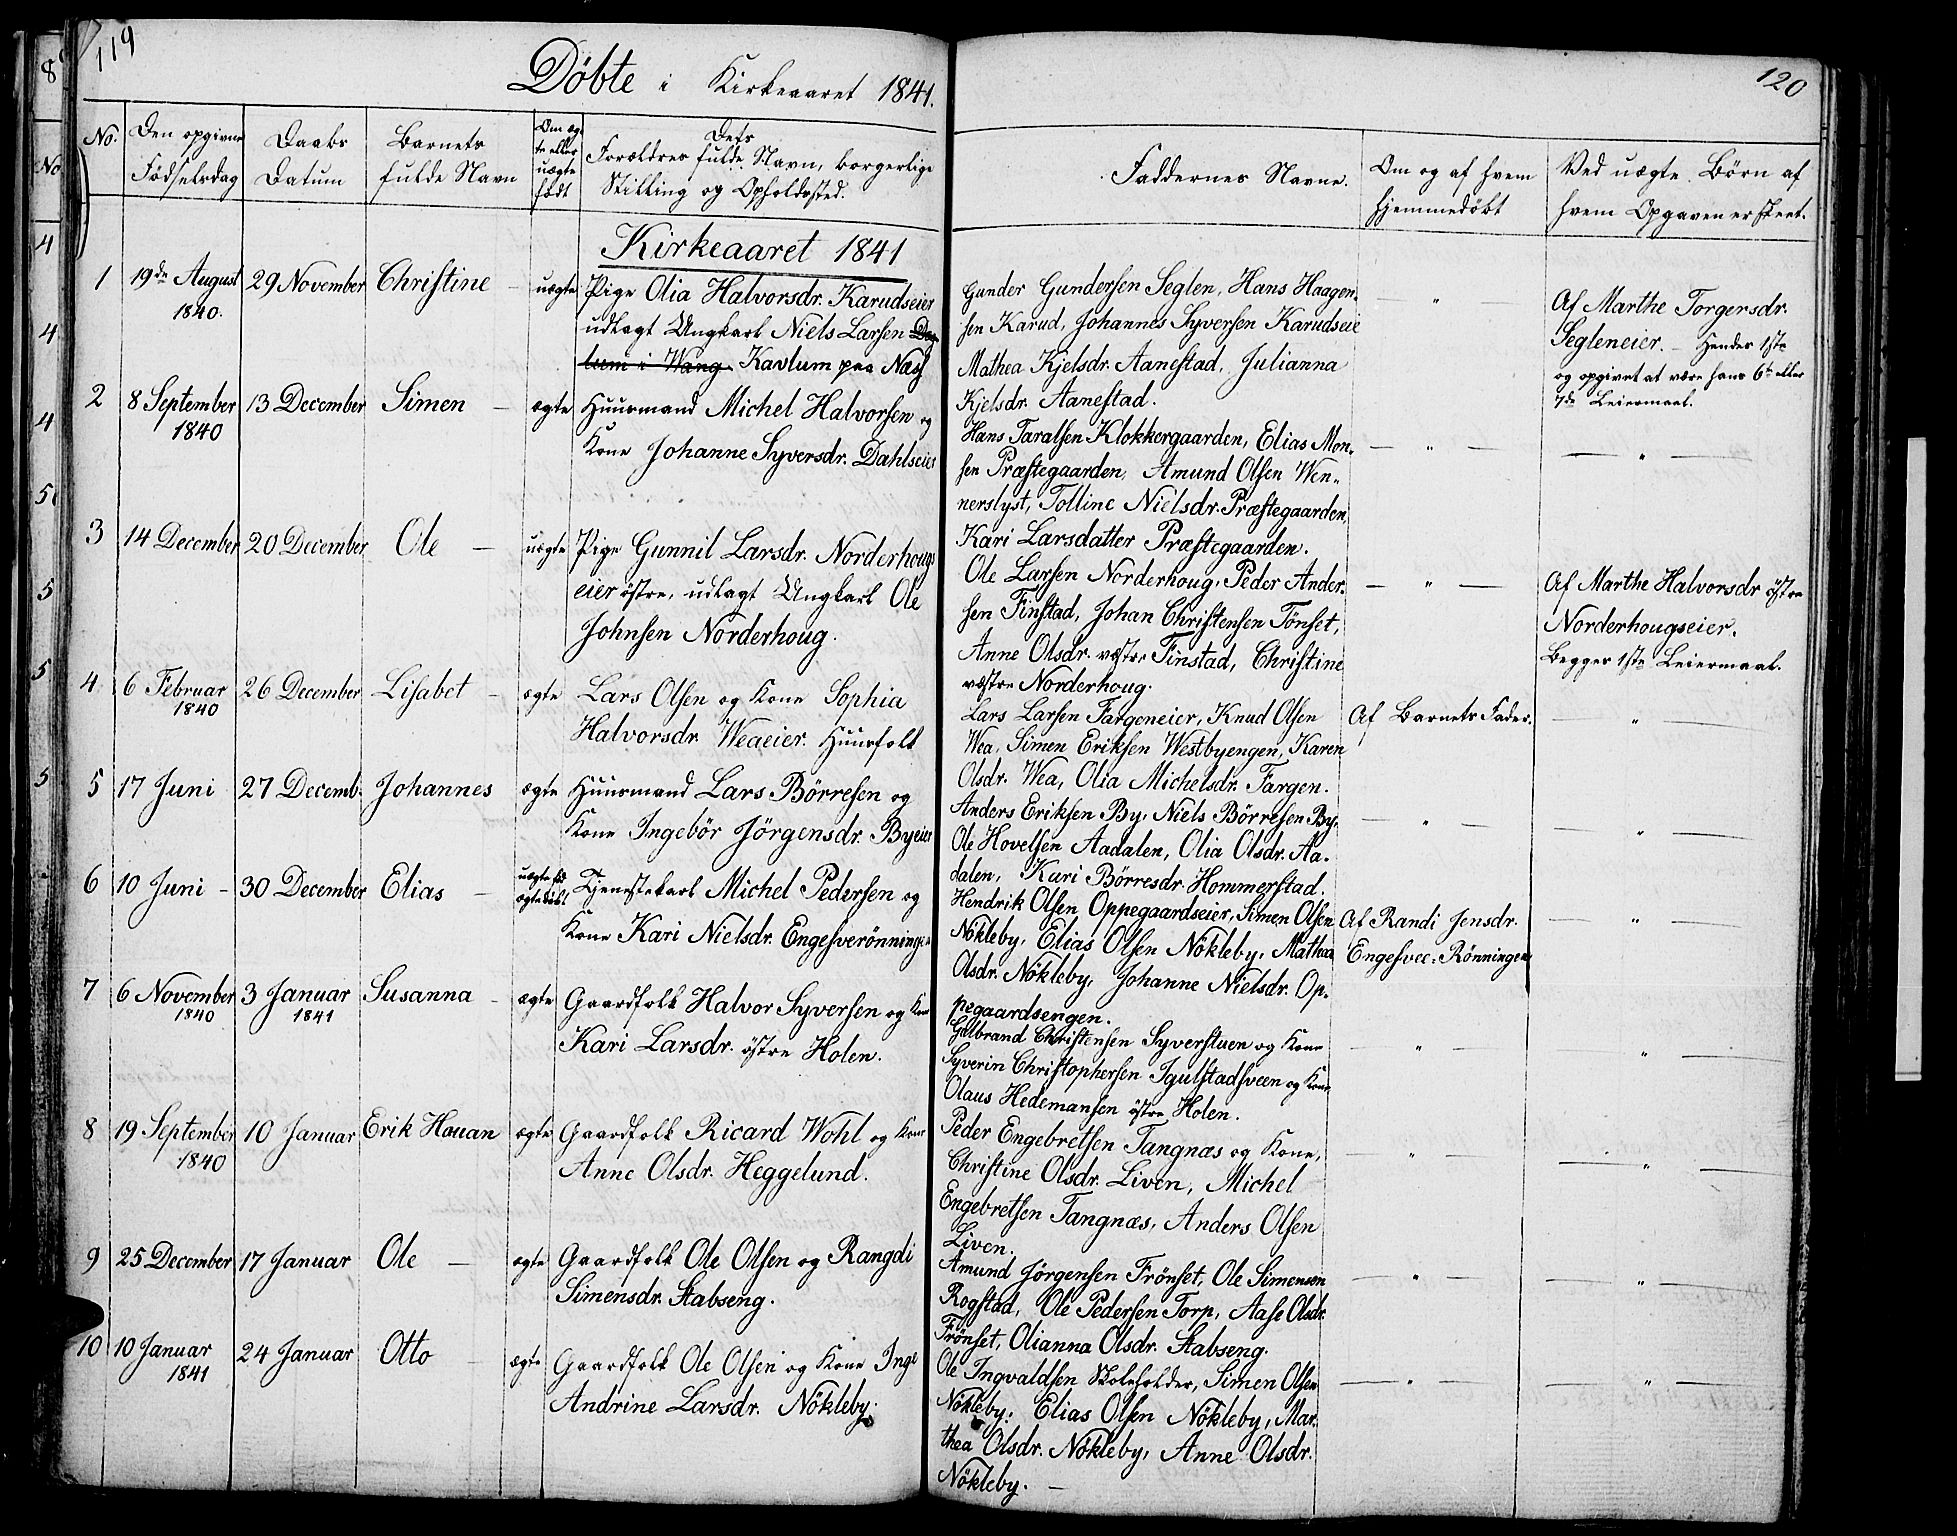 119
Döbte i Kirkeaaret 1841.
No.
Den opgivne
Födselsdag
Daabs
Datum
Barnets
fulde Navn
Om æg-
te eller
uægte
födt
Dets
Forældres fulde Navn, borgerlige
Stilling og Opholdssted.
Kirkeaaret 1841
1 19de August 29 November Christine - uægte Pige Olia Halvorsdr. Karudseier
1840. udlagt Ungkarl Niels Larsen Dog-
lum i Wang Kavlum paa Næs
2 8 September 13 December Simen - ægte Huusmand Michel Halvorsen og
1840 Kone Johanne Syversdr. Dahlseier
3 14 December 20 December Ole - uægte Pige Gunnil Larsdr. Norderhougs
eier östre, udlagt Ungkarl Ole
Johnsen Norderhoug.
4 6 Februar 26 December Lisabet - ægte Lars Olsen og Kone Sophia
1840 Halvorsdr. Weaeier. Huusfolk
5 17 Juni 27 Decemb. Johannes ægte Huusmand Lars Börresen og
Kone Ingebör Jörgensdr. Byeier
6 10 Juni - 30 December Elias - uægte
ægte Tjenestekarl Michel Pedersen og
Kone Kari Nielsdr. Engesverönningen
7 6 November 3 Januar Susanna - ægte Gaardfolk Halvor Syversen og Kone
1840 1841 Kari Larsdr. östre Holen.
8 19 September 10 Januar Erik Houan ægte Gaardfolk Ricard Wohl og Kone
1840 Anne Olsdr. Heggelund.
9 25 December 17 Januar Ole - ægte Gaardfolk Ole Olsen og Rangdi
Simensdr. Stabseng.
10 10 Januar 24 Januar Otto - ægte Gaardfolk Ole Olsen og Kone Inge
1841 Andrine Larsdr. Nökleby.
120
Faddernes Navne.
Om og af hvem
hjemmedöbt
Ved uægte Börn af
hvem Opgaven er skeet.
Gunder Gundersen Seglen, Hans Haagen-
sen Karud, Johannes Syversen Karudseie
Mathea Kjelsdr. Aanestad, Julianna
Kjelsdr. Aanestad.
Af Marthe Torgersdr.
Segleneier. - Hendes 1ste
og opgivet at være hans 6te eller
7de Leiermaal.
Hans Taralsen Klokkergaarden, Elias Mon-
sen Præstegaarden, Amund Olsen Wen-
nerslyst, Tolline Nielsdr. Præstegaarden,
Kari Larsdatter Præstegaarden.
Ole Larsen Norderhoug, Peder Ander-
sen Finstad, Johan Christensen Tönset,
Anne Olsdr. vestre Finstad, Christine
vestre Norderhoug.
Af Marthe Halvorsdr östre
Norderhougseier.
Begges 1ste Leiermaal.
Lars Larsen Fargeneier, Knud Olsen
Wea, Simen Eriksen Westbyengen, Karen
Olsdr. Wea, Olia Michelsdr. Fargen.
Af Barnets Fader.
Anders Eriksen By, Niels Börresen By,
Ole Hovelsen Aadalen, Olia Olsdr. Aa-
dalen, Kari Börresdr. Hommerstad.
Hendrik Olsen Oppegaardseier, Simen Olsen
Nökleby, Elias Olsen Nökleby, Mathea
Olsdr. Nökleby, Johanne Nielsdr. Op-
pegaardsengen.
Af Randi Jensdr.
Engesvee-Rönningen
Gulbrand Christensen Syverstuen og Kone
Syverin Christophersen Igulstadsveen og Kone
Olaus Hedemansen östre Holen.
Peder Engebretsen Tangnæs og Kone,
Christine Olsdr. Liven, Michel
Engebretsen Tangnæs, Anders Olsen
Liven.
Amund Jörgensen Frönset, Ole Simensen
Rogstad, Ole Pedersen Torp, Aase Olsdr.
Frönset, Olianna Olsdr. Stabseng.
Ole Ingvaldsen Skoleholder, Simen Olsen
Nökleby, Elias Olsen Nökleby, Mar-
thea Olsdr. Nökleby, Anne Olsdr.
Nökleby. -